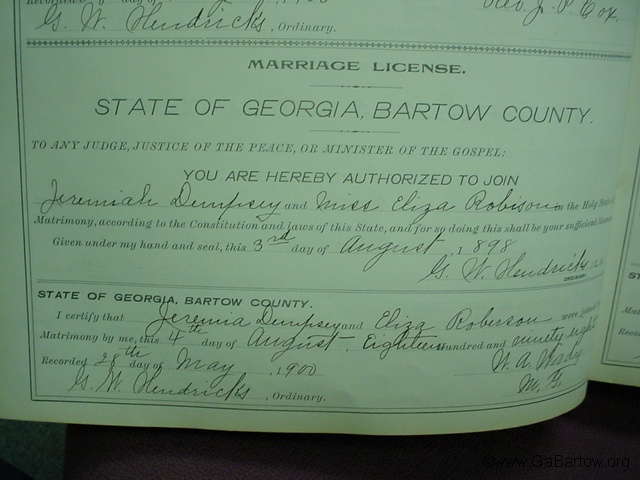 Rev. J. P. Cox.
G. W. Hendricks, Ordinary.
MARRIAGE LICENSE.
STATE OF GEORGIA, BARTOW COUNTY.
TO ANY JUDGE, JUSTICE OF THE PEACE, OR MINISTER OF THE GOSPEL:
YOU ARE HEREBY AUTHORIZED TO JOIN
Jeremiah Dempsey and Miss Eliza Robison in the Holy State of
Matrimony, according to the Constitution and laws of this State, and for so doing this shall be your sufficient license.
Given under my hand and seal, this 3rd day of August, 1898
G. W. Hendricks
ORDINARY.
STATE OF GEORGIA, BARTOW COUNTY.
I certify that Jeremia Dempsey and Eliza Roberson were joined in
Matrimony by me, this 4th day of August. Eighteen Hundred and ninety eight
Recorded 28th day of May, 1900
W. A. Wady
M. G.
G. W. Hendricks, Ordinary.
©www.GaBartow.org